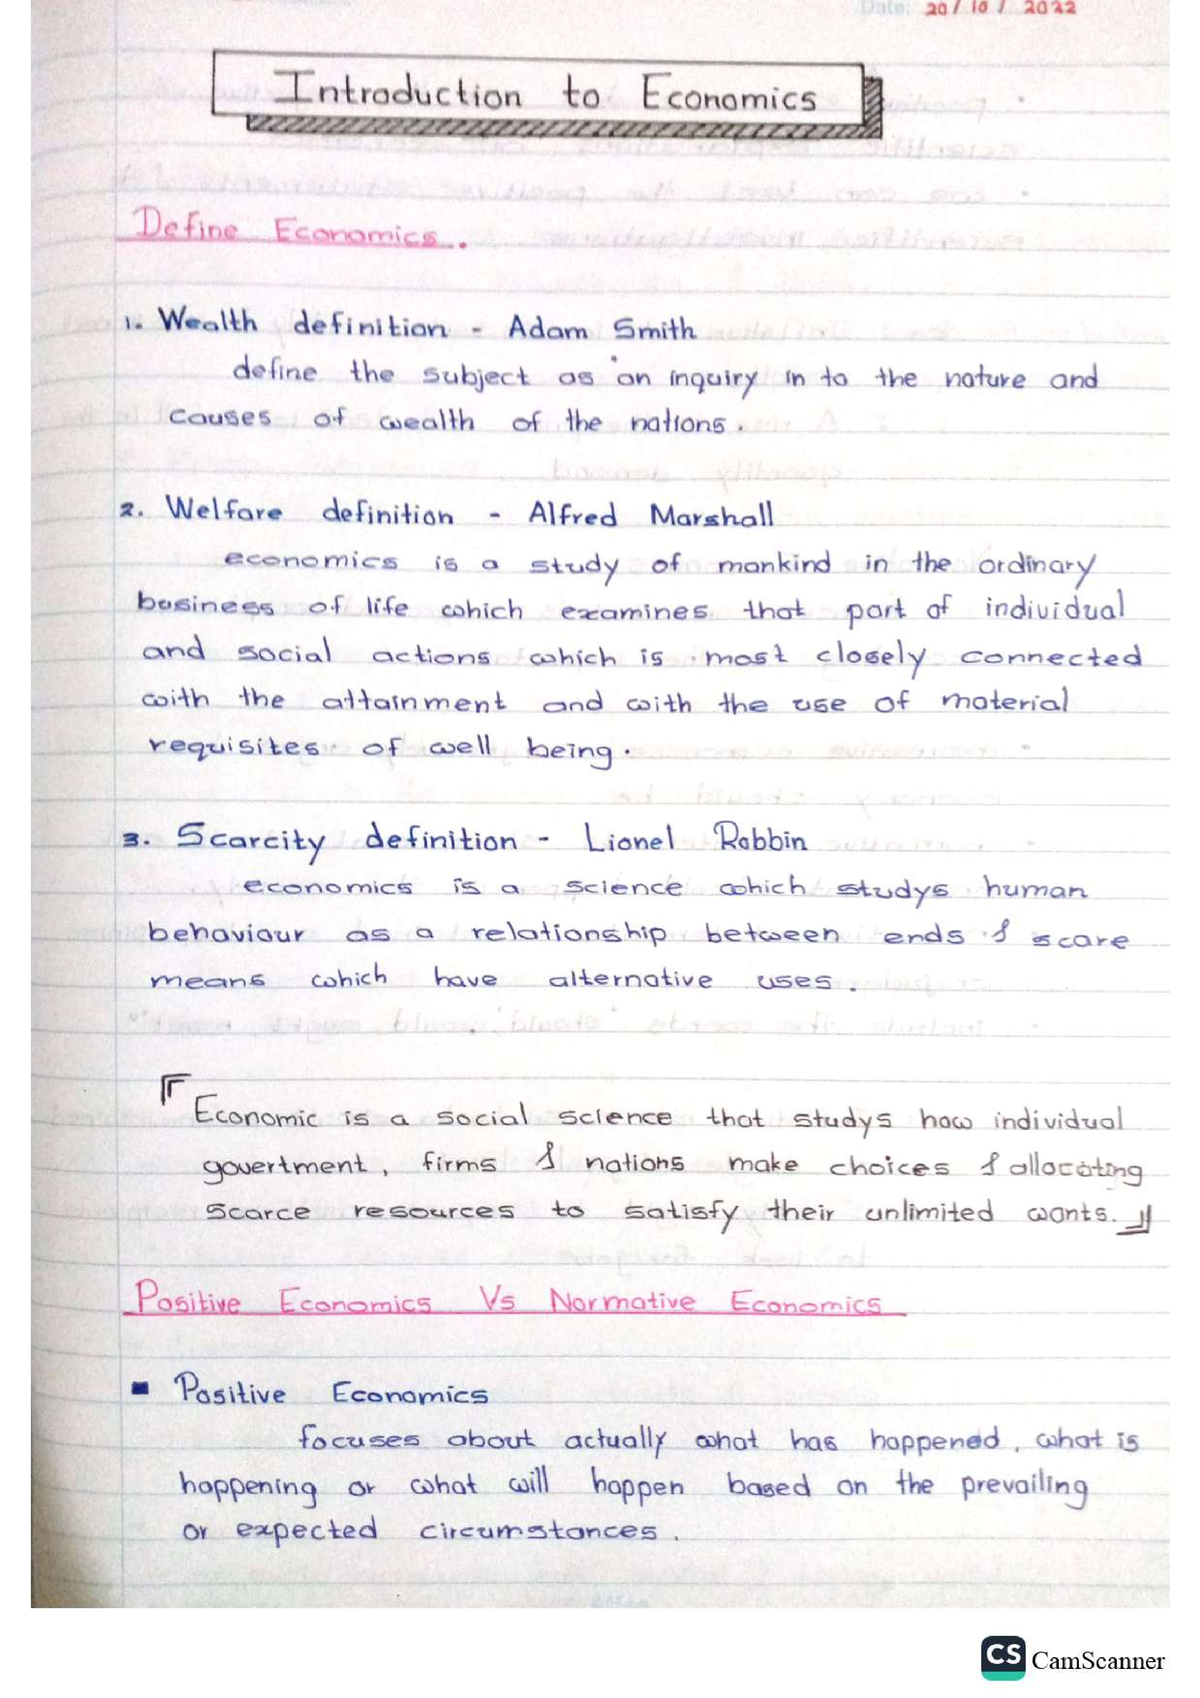 Date: 20/10/2022
Introduction to Economics
Define Economics.
1. Wealth definition - Adam Smith
define the subject as an inquiry in to the nature and
causes of wealth of the nations.
2. Welfare definition - Alfred Marshall
economics is a study of mankind in the ordinary
business of life which examines that part of individual
and social actions which is most closely connected
with the attainment and with the use of material
requisites of well being.
3. Scarcity definition - Lionel Robbin
economics is a science which studys human
behaviour as a relationship between ends & scare
means which have alternative uses.
『Economic is a social science that studys how individual
govertment, firms & nations make choices & allocating
scarce resources to satisfy their unlimited wants.』
Positive Economics Vs Normative Economics
▪ Positive Economics
focuses about actually what has happened, what is
happening or what will happen based on the prevailing
or expected circumstances.
CS CamScanner